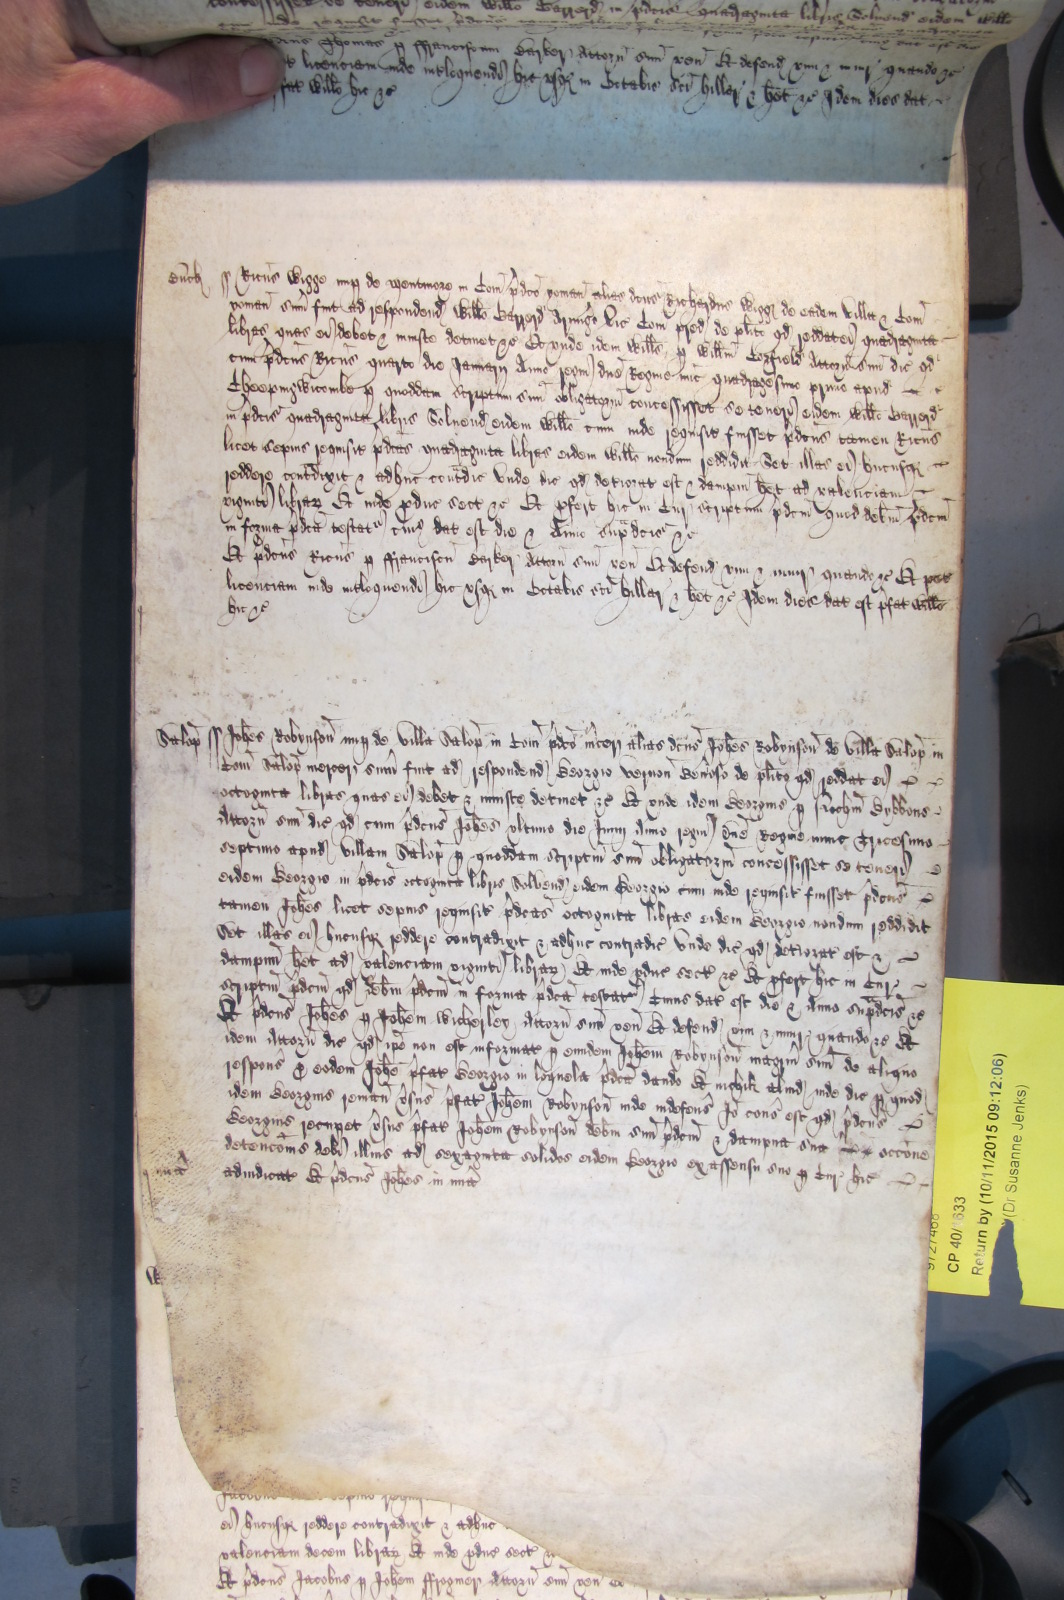 concessisset se teneri eidem Willo Garrerd in pdcis quadraginta libris Solvend eidem Willo
Thomas p Franciscum Barker Attorn suu ven Et defend vim & iniur quando &c
licenciam inde interloquendi hic usq in Octabis Sci Hillar & het &c Idem dies dat
fat Willo hic &c
Buck ss Ricus Wigge nup de Wentmore in Com pdco yoman alias dcus Richardus Wigge de eadem villa & Com
yoman sum fuit ad respondend Willo Garrerd Armigo Vic Com pred de plito qd reddat ei quadraginta
libras quas ei debet & iniuste detinet &c Et unde idem Wills p Willm Corfield Attorn suu dic qd
cum pdcus Ricus quarto die Januarij Anno regni dne Regine nunc quadragesimo primo apud
Cheepingwicombe p quoddam scriptum suu obligatoriu concessisset se teneri eidem Willo Garrerd
in pdcis quadraginta libris Solvend eidem Willo cum inde requisit fuisset pdcus tamen Ricus
licet sepius requisit pdcas quadraginta libras eidem Willo nondum reddidit Set illas ei hucusq
reddere contradixit & adhuc contradic Unde dic qd deteriorat est & dampnu het ad valenciam
viginti librar Et inde pduc sect &c Et pfert hic in Cur scriptum pdcm quod debm pdcm
in forma pdca testatr cuius dat est die & Anno supdcis &c
Et pdcus Ricus p Franciscu Barker Attorn suu ven Et defend vim & iniur quando &c Et petit
licenciam inde interloquendi hic usq in Octabis Sci Hillar & het &c Idem dies dat est pfat Willo
hic &c
Salop ss Johes Robynson nup de villa Salop in Com pdco mcer alias dcus Johes Robynson de villa Salop in
Com Salop mercer sum fuit ad respondend Georgio Vernon Genoso de plito qd reddat ei
octoginta libras quas ei debet & iniuste detinet &c Et unde idem Georgius p Gybbons
Attorn suu dic qd cum pdcus Johes ultimo die Junij Anno regni dne Regine nunc Tricesimo
septimo apud villam Salop p quoddam scriptu suu obligatoriu concessisset se teneri
eidem Georgio in pdcis octoginta libris Solvend eidem Georgio cum inde requisit fuisset pdcus
tamen Johes licet sepius requisit pdcas octoginta libras eidem Georgio nondum reddidit
Set illas ei hucusq reddere contradixit & adhuc contradic Unde dic qd deteriorat est &
dampnu het ad valenciam viginti librar Et inde pduc sect &c Et pfert hic in Cur
scriptu pdcm qd debm pdcm in forma pdca testatr Cuius dat est die & Anno supdcis &c
Et pdcus Johes p Johem Wicherley Attorn suu ven Et defend vim & iniur quando &c Et
idem Attorn dic qd ipe non est informat p eundem Johem Robynson magrm suu de aliquo
respons p eodem Johe pfat Georgio in loquela pdca dando Et nichil aliud inde dic p quod
idem Georgius reman vsus pfat Johem Robynson inde indefens Io cons est qd pdcus
Georgius recupet vsus pfat Johem Robynson debm suu pdcm & dampna sua occone
detencois debi illius ad sexaginta solidos eidem Georgio ex assensu suo p Cur hic
mia
adiudicat Et pdcus Johes in mia
ei hucusq reddere contradixit & adhuc
valenciam decem librar Et inde pduc sect
Et pdcus Jacobus p Johem Frogmer Attorn suu ven Et
CP 40/1633
Return by (10/11/2015 09:12:06)
(Dr Susanne Jenks)